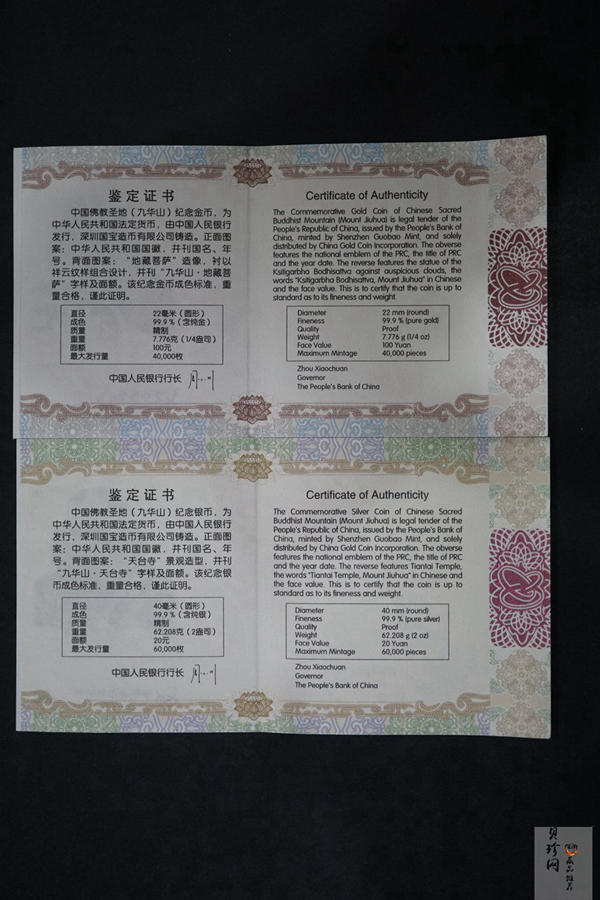 鉴定证书
中国佛教圣地（九华山）纪念金币，为
中华人民共和国法定货币，由中国人民银行
发行，深圳国宝造币有限公司铸造。正面图
案：中华人民共和国国徽，并刊国名、年
号。背面图案：“地藏菩萨”造像，衬以
祥云纹样组合设计，并刊“九华山·地藏菩
萨”字样及面额。该纪念金币成色标准，重
量合格，谨此证明。
直径 22毫米（圆形）
成色 99.9％（含纯金）
质量 精制
重量 7.776克（1/4盎司）
面额 100元
最大发行量 40,000枚
中国人民银行行长
Certificate of Authenticity
The Commemorative Gold Coin of Chinese Sacred
Buddhist Mountain (Mount Jiuhua) is legal tender of the
People's Republic of China, issued by the People's Bank of
China, minted by Shenzhen Guobao Mint, and solely
distributed by China Gold Coin Incorporation. The obverse
features the national emblem of the PRC, the title of PRC
and the year date. The reverse features the statue of the
Ksitigarbha Bodhisattva against auspicious clouds, the
words "Ksitigarbha Bodhisattva, Mount Jiuhua" in Chinese
and the face value. This is to certify that the coin is up to
standard as to its fineness and weight.
Diameter 22 mm (round)
Fineness 99.9 % (pure gold)
Quality Proof
Weight 7.776 g (1/4 oz)
Face Value 100 Yuan
Maximum Mintage 40,000 pieces
Zhou Xiaochuan
Governor
The People's Bank of China
鉴定证书
中国佛教圣地（九华山）纪念银币，为
中华人民共和国法定货币，由中国人民银行
发行，深圳国宝造币有限公司铸造。正面图
案：中华人民共和国国徽，并刊国名、年
号。背面图案：“天台寺”景观造型，并刊
“九华山·天台寺”字样及面额。该纪念银
币成色标准，重量合格，谨此证明。
直径 40毫米（圆形）
成色 99.9％（含纯银）
质量 精制
重量 62.208克（2盎司）
面额 20元
最大发行量 60,000枚
中国人民银行行长
Certificate of Authenticity
The Commemorative Silver Coin of Chinese Sacred
Buddhist Mountain (Mount Jiuhua) is legal tender of the
People's Republic of China, issued by the People's Bank of
China, minted by Shenzhen Guobao Mint, and solely
distributed by China Gold Coin Incorporation. The obverse
features the national emblem of the PRC, the title of PRC
and the year date. The reverse features Tiantai Temple,
the words "Tiantai Temple, Mount Jiuhua" in Chinese and
the face value. This is to certify that the coin is up to
standard as to its fineness and weight.
Diameter 40 mm (round)
Fineness 99.9 % (pure silver)
Quality Proof
Weight 62.208 g (2 oz)
Face Value 20 Yuan
Maximum Mintage 60,000 pieces
Zhou Xiaochuan
Governor
The People's Bank of China
贝珍网